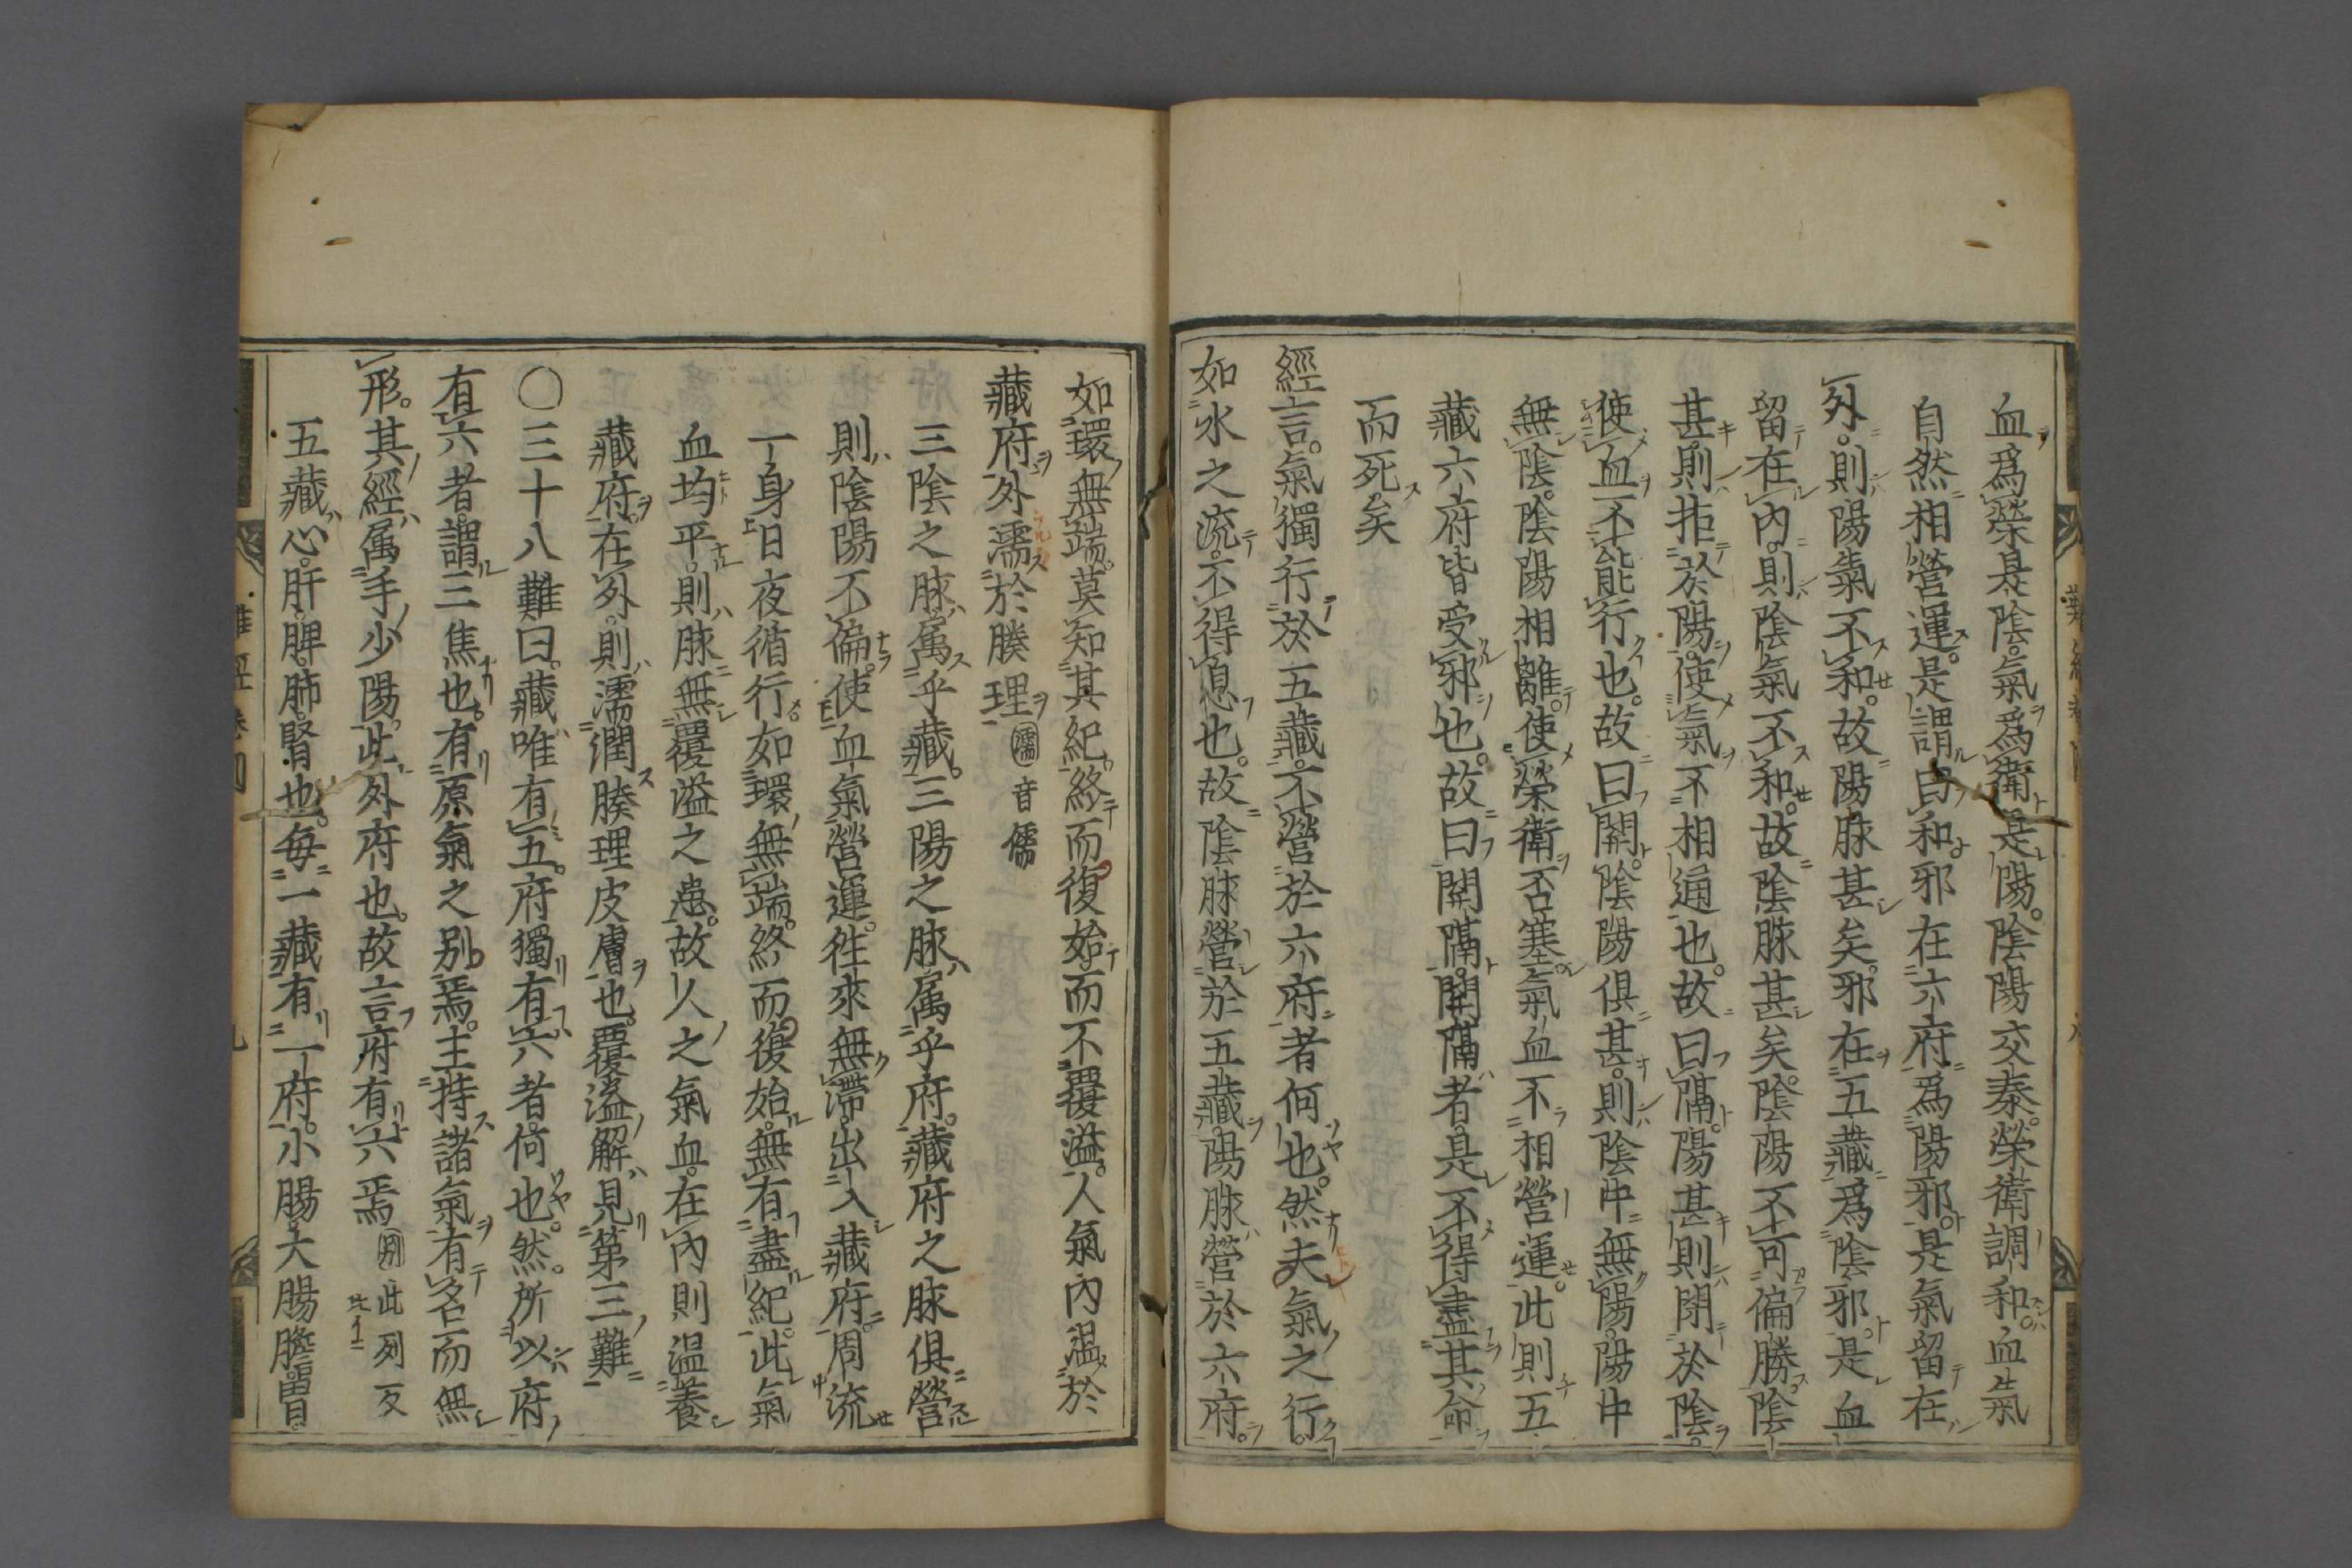 血爲榮是陰氣爲衛是陽陰陽交泰榮衛調和血氣
自然相營運是謂由和邪在六府爲陽邪是氣留在
外則陽氣不和故陽脉甚矣邪在五藏爲陰邪是血
留在內則陰氣不和故陰脉甚矣陰陽不可偏勝陰
甚則拒於陽使氣不相通也故曰隔陽甚則閉於陰
使血不能行也故曰關陰陽俱甚則陰中無陽陽中
無陰陰陽相離使榮衛否塞氣血不相營運此則五
藏六府皆受邪也故曰關隔關隔者是不得盡其命
而死矣
經言氣獨行於五藏不營於六府者何也然夫氣之行
如水之流不得息也故陰脉營於五藏陽脉營於六府
如環無端莫知其紀終而復始而不覆溢人氣內温於
藏府外濡於腠理 濡音儒
三陰之脉属乎藏三陽之脉属乎府藏府之脉俱營
則陰陽不偏使血氣營運徃來無滯出入藏府周流
一身日夜循行如環無端終而復始無有盡紀此氣
血均平則脉無覆溢之患故人之氣血在內則温養
藏府在外則濡潤腠理皮膚也覆溢解見第三難
〇三十八難曰藏唯有五府獨有六者何也然所以府
有六者謂三焦也有原氣之別焉主持諸氣有名而無
形其經属手少陽此外府也故言府有六焉 別此列反
五藏心肝脾肺腎也每一藏有一府小腸大腸膽胃